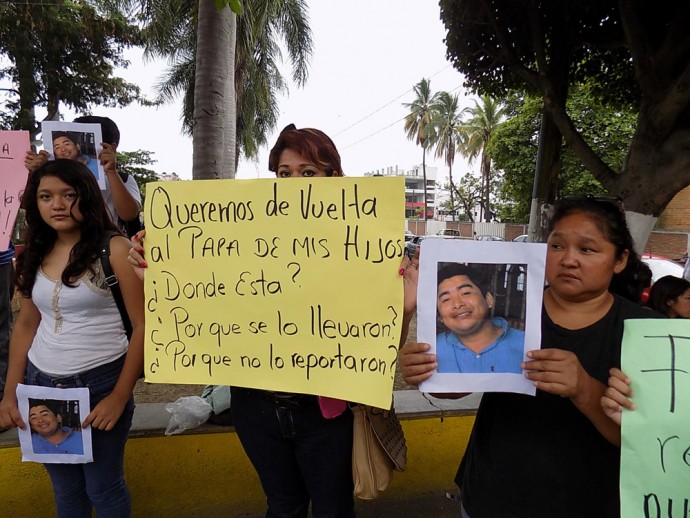 Queremos de Vuelta
al PAPA DE MIS HIJOS
¿Donde Esta?
¿Por que se lo llevaron?
¿Por que no lo reportaron?